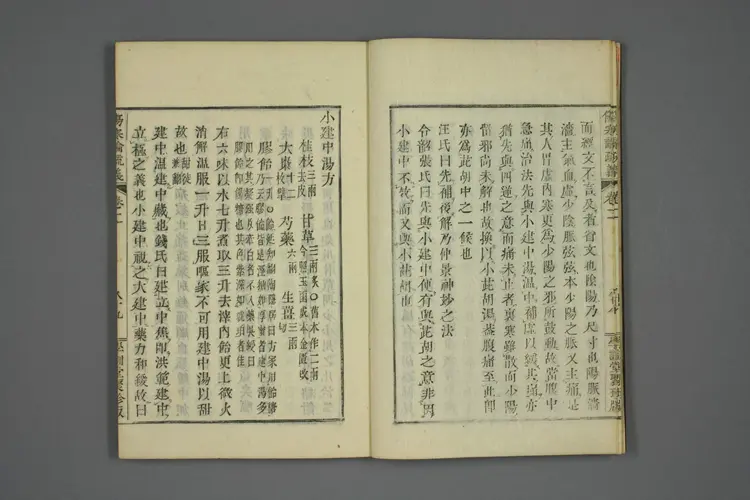 而經文不言及者省文也陰陽乃尺寸也陽脈濇
濇主氣血虛少陰脈弦弦本少陽之脈又主痛是
其人胃虛內寒更為少陽之邪所鼓動故當腹中
急痛治法先與小建中湯溫中補虛以緩其痛亦
猶先與四逆之意而痛未止者裏寒雖散而少陽
留邪尚未解也故換以小柴胡湯蓋腹痛至此即
亦為柴胡中之一候也
汪氏曰先補後解乃仲景神妙之法
令韶張氏曰先與小建中便有與柴胡之意非因
小建中不效而又與小柴胡也
小建中湯方
桂枝三兩去皮 甘草三兩炙〇舊本作二兩今照玉函成本金匱改
大棗十二枚擘 芍藥六兩 生薑三兩切
膠飴一升
右六味以水七升煮取三升去滓內飴更上微火
消解溫服一升日三服嘔家不可用建中湯以甜
故也
建中溫中藏也錢氏曰建立中焦即洪範建中
立極之義也小建中視之大建中藥力和緩故曰
卷二